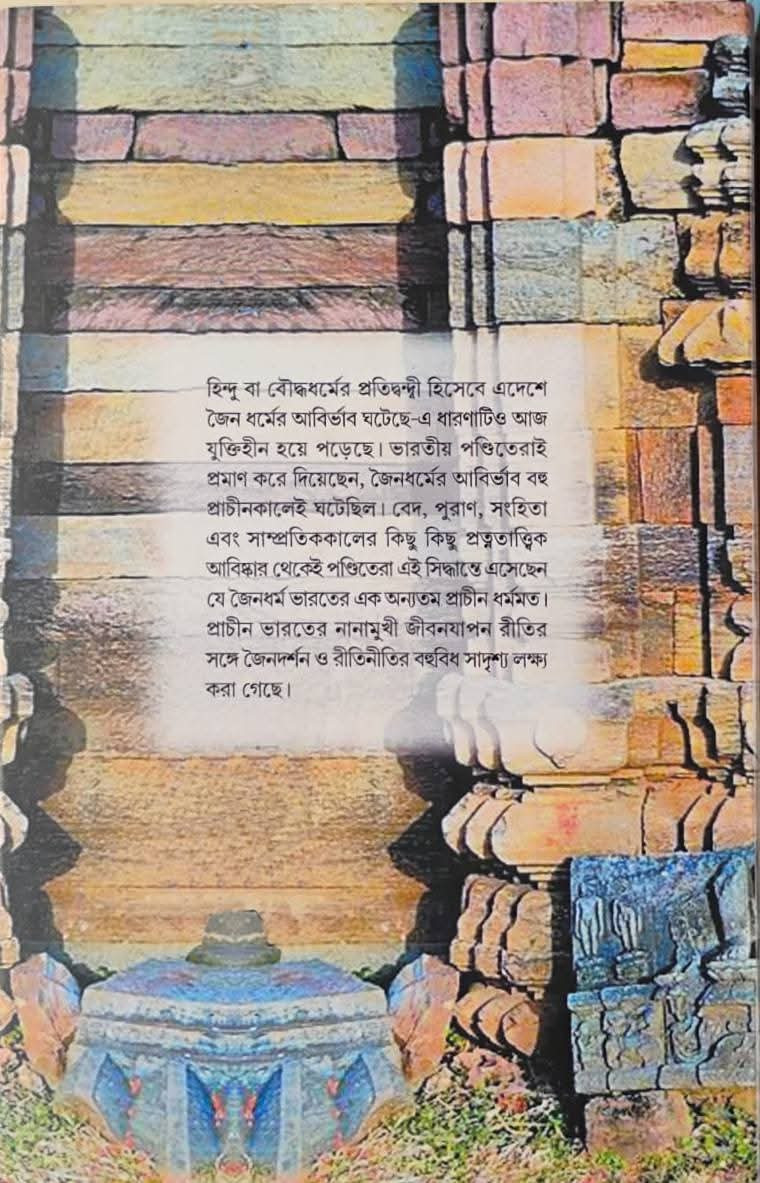 হিন্দু বা বৌদ্ধধর্মের প্রতিদ্বন্দ্বী হিসেবে এদেশে
জৈন ধর্মের আবির্ভাব ঘটেছে-এ ধারণাটিও আজ
যুক্তিহীন হয়ে পড়েছে। ভারতীয় পণ্ডিতেরাই
প্রমাণ করে দিয়েছেন, জৈনধর্মের আবির্ভাব বহু
প্রাচীনকালেই ঘটেছিল। বেদ, পুরাণ, সংহিতা
এবং সাম্প্রতিককালের কিছু কিছু প্রত্নতাত্ত্বিক
আবিষ্কার থেকেই পণ্ডিতেরা এই সিদ্ধান্তে এসেছেন
যে জৈনধর্ম ভারতের এক অন্যতম প্রাচীন ধর্মমত।
প্রাচীন ভারতের নানামুখী জীবনযাপন রীতির
সঙ্গে জৈনদর্শন ও রীতিনীতির বহুবিধ সাদৃশ্য লক্ষ্য
করা গেছে।